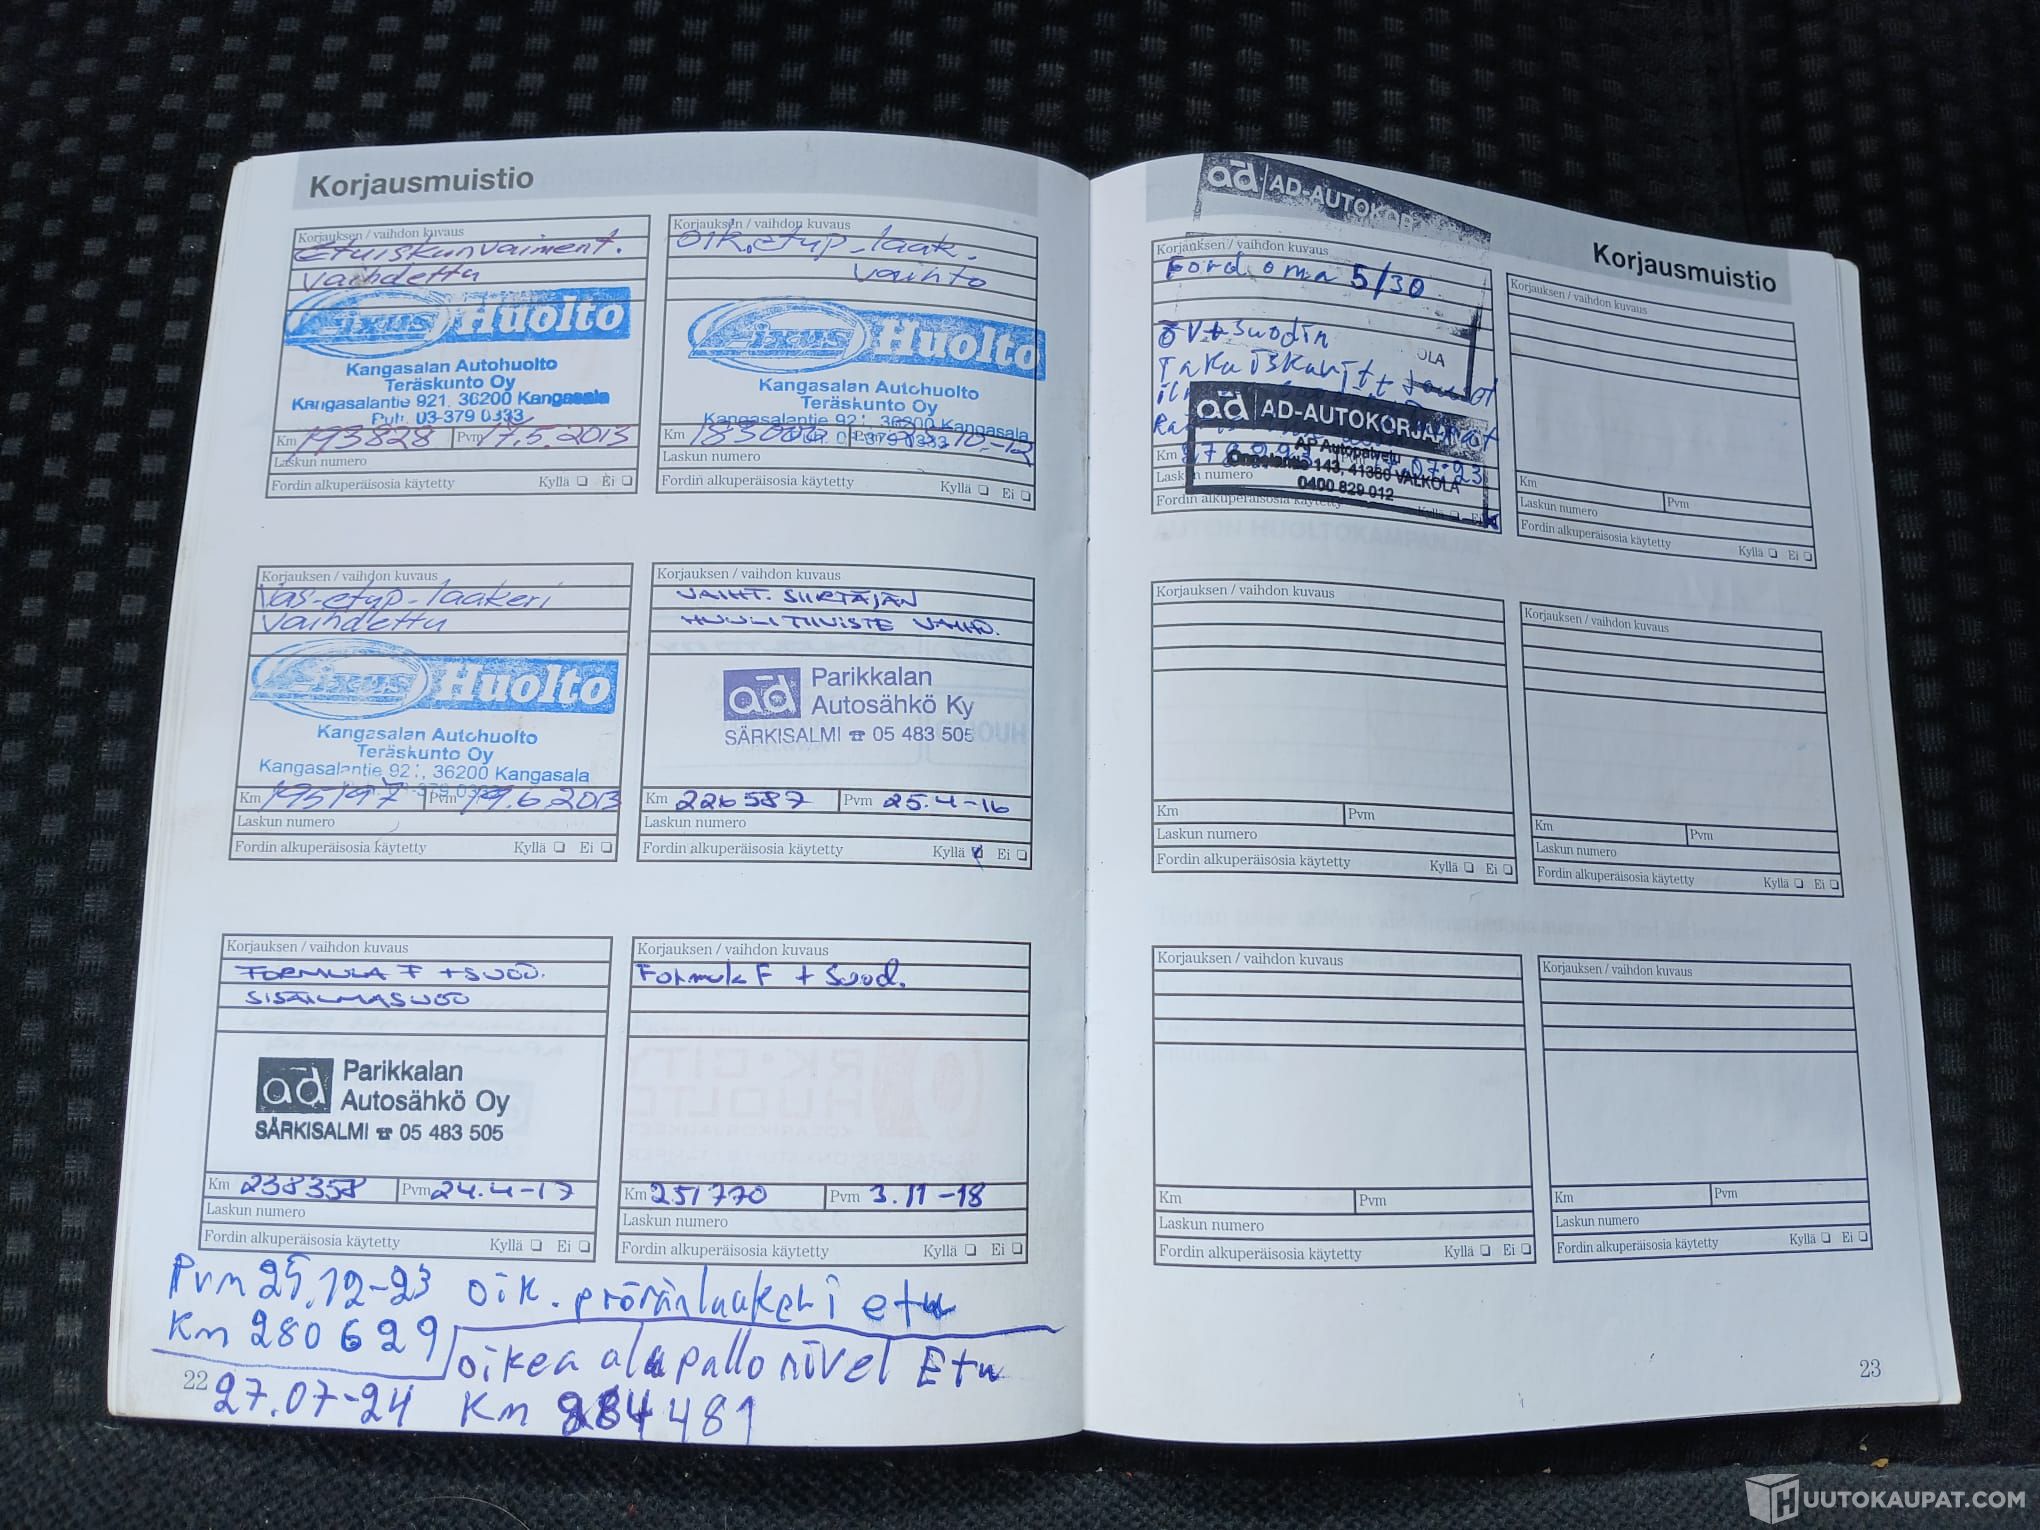 Korjausmuistio
Korjauksen / vaihdon kuvaus
Etuiskunvaiment.
vaihdettu
Fixus Huolto
Kangasalan Autohuolto
Teräskunto Oy
Kangasalantie 921, 36200 Kangasala
Puh. 03-379 0333
Km 193828 Pvm 17.5.2013
Laskun numero
Fordin alkuperäisosia käytetty Kyllä ❑ Ei ❑
Korjauksen / vaihdon kuvaus
Oik.etup-laak.
vaihto
Fixus Huolto
Kangasalan Autohuolto
Teräskunto Oy
Kangasalantie 921, 36200 Kangasala
03-379 0333
Km Pvm 10-12
Laskun numero
Fordin alkuperäisosia käytetty Kyllä ❑ Ei ❑
Korjauksen / vaihdon kuvaus
Vas-etup-laakeri
vaihdettu
Fixus Huolto
Kangasalan Autohuolto
Teräskunto Oy
Kangasalantie 921, 36200 Kangasala
Km 195197 Pvm 19.6.2013
Laskun numero
Fordin alkuperäisosia käytetty Kyllä ❑ Ei ❑
Korjauksen / vaihdon kuvaus
VAIHT. SIIRTÄJÄN
HUULITIIVISTE
ad Parikkalan
Autosähkö Ky
SÄRKISALMI ☎ 05 483 505
Km 226587 Pvm 25.4-16
Laskun numero
Fordin alkuperäisosia käytetty Kyllä ☑ Ei ❑
Korjauksen / vaihdon kuvaus
FORMULA F + SUOD.
SISÄILMASUOD
ad Parikkalan
Autosähkö Oy
SÄRKISALMI ☎ 05 483 505
Km 238358 Pvm 24.4-17
Laskun numero
Fordin alkuperäisosia käytetty Kyllä ❑ Ei ❑
Korjauksen / vaihdon kuvaus
Formula F + Suod.
Km 251770 Pvm 3.11-18
Laskun numero
Fordin alkuperäisosia käytetty Kyllä ❑ Ei ❑
Pvm 25.12-23 oik. pyöränlaakeri etu
Km 280629
oikea alapallonivel Etu
27.07-24 Km 284481
22
ad AD-AUTOKOR
Korjausmuistio
Korjauksen / vaihdon kuvaus
Ford oma 5/30
öv+suodin
OLA
Takaiskarit +
ad AD-AUTOKORJAAMO
AP Autopalvelu
143, 41360 VALKOLA
0400 829 012
Km 07.23
Laskun numero
Fordin alkuperäisosia käytetty Kyllä ❑ Ei ☒
Korjauksen / vaihdon kuvaus
Km Pvm
Laskun numero
Fordin alkuperäisosia käytetty Kyllä ❑ Ei ❑
Korjauksen / vaihdon kuvaus
Km Pvm
Laskun numero
Fordin alkuperäisosia käytetty Kyllä ❑ Ei ❑
Korjauksen / vaihdon kuvaus
Km Pvm
Laskun numero
Fordin alkuperäisosia käytetty Kyllä ❑ Ei ❑
Korjauksen / vaihdon kuvaus
Km Pvm
Laskun numero
Fordin alkuperäisosia käytetty Kyllä ❑ Ei ❑
Korjauksen / vaihdon kuvaus
Km Pvm
Laskun numero
Fordin alkuperäisosia käytetty Kyllä ❑ Ei ❑
23
HUUTOKAUPAT.COM